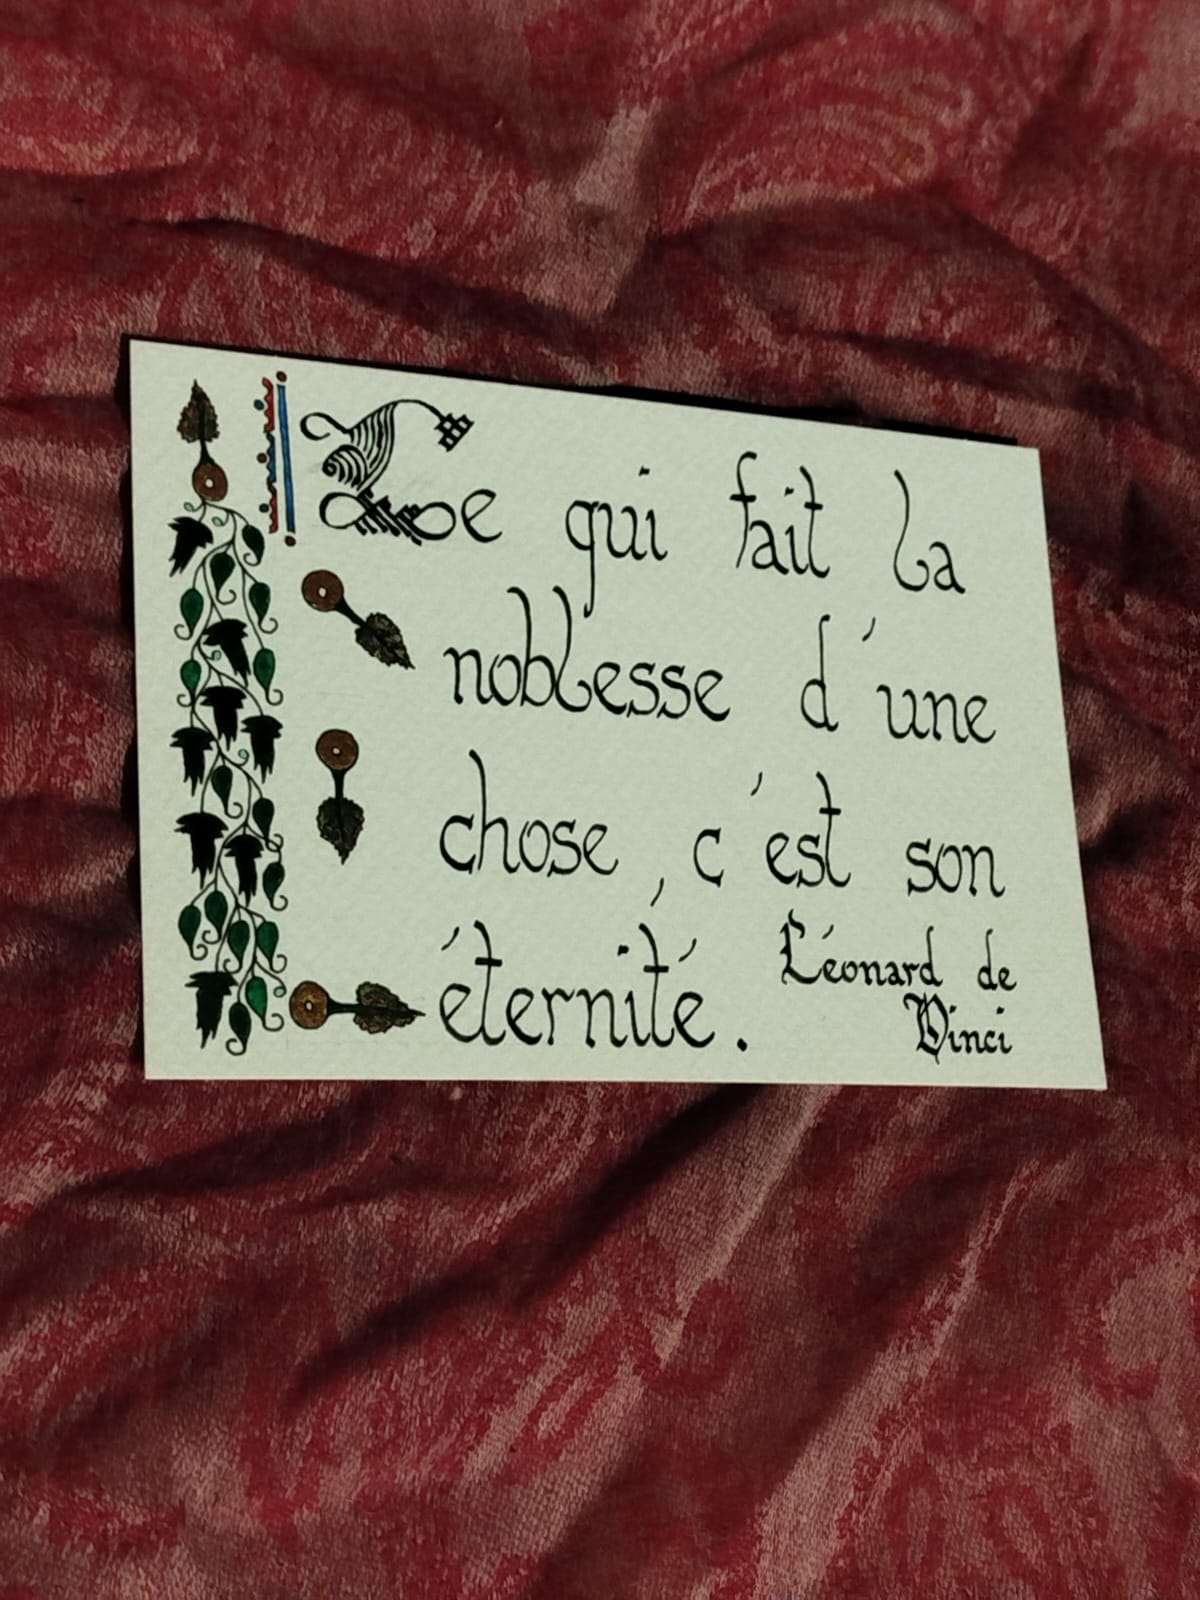 Ce qui fait la
noblesse d'une
chose, c'est son
éternité.
Léonard de
Vinci